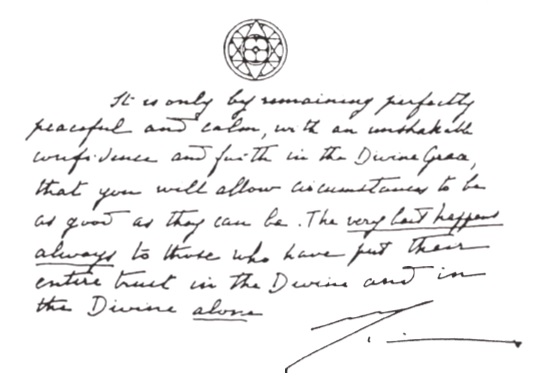 It is only by remaining perfectly
peaceful and calm, with an unshakable
confidence and faith in the Divine Grace,
that you will allow circumstances to be
as good as they can be. The very best happens
always to those who have put their
entire trust in the Divine and in
the Divine alone